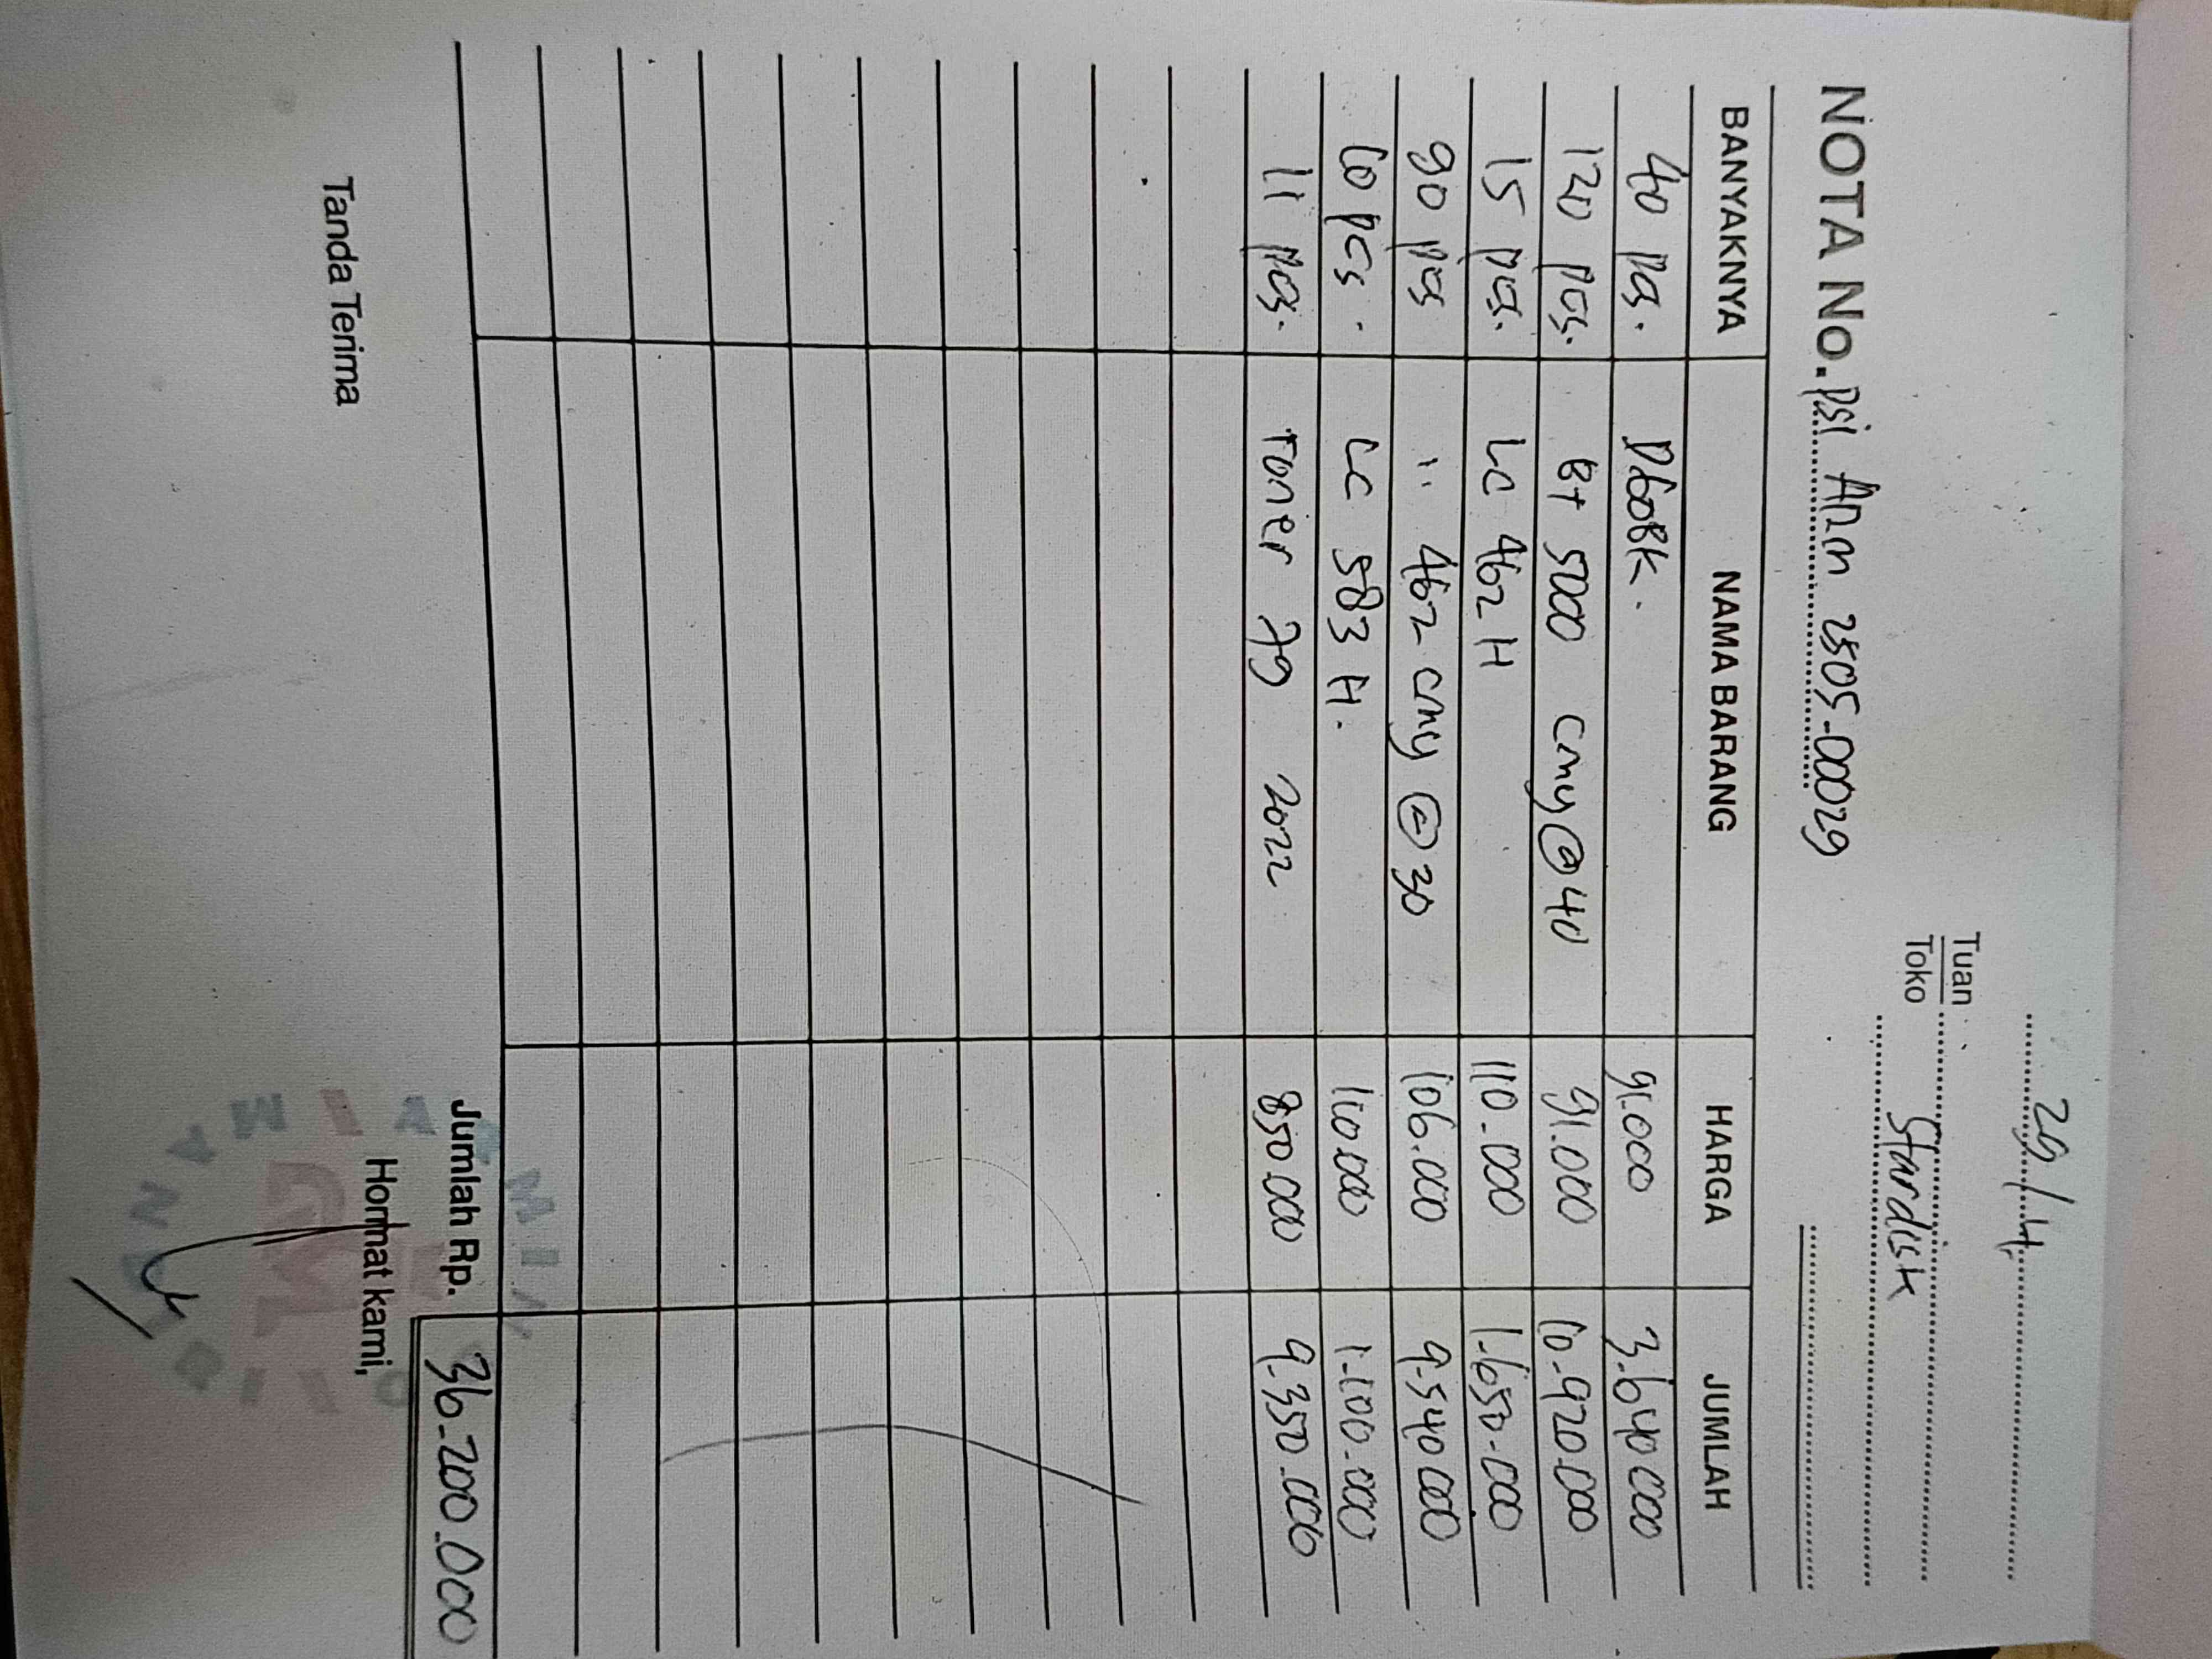 29/4
Tuan
Toko Stardisk
NOTA No. psi Arm 2505-00029
BANYAKNYA NAMA BARANG HARGA JUMLAH
40 pcs. D60BK. 91.000 3.640.000
120 pcs. Bt 5000 cmy @ 40 91.000 10.920.000
15 pcs. Lc 462 H 110.000 1.650.000
90 pcs " 462 cmy @ 30 106.000 9.540.000
10 pcs. Lc 583 H. 110.000 1.100.000
11 pcs. Toner 79 2022 850.000 9.350.000
Jumlah Rp. 36.200.000
Tanda Terima Hormat kami,